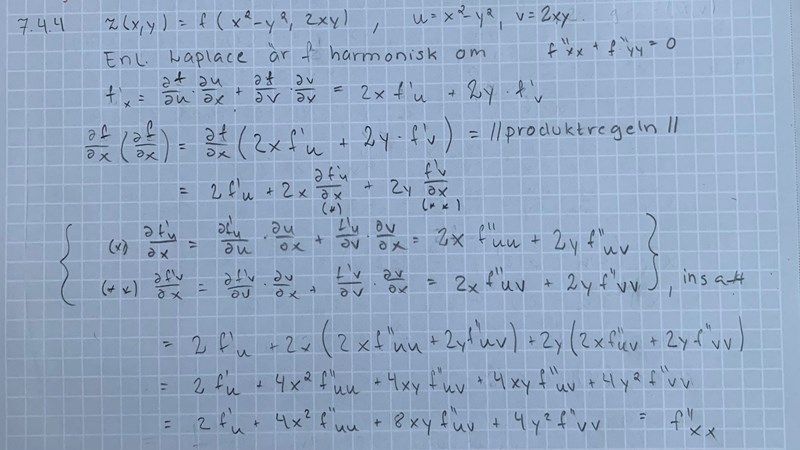 7.4.4 z(x,y) = f(x²-y², 2xy), u=x²-y², v=2xy.
Enl. Laplace är f harmonisk om f''xx + f''yy = 0
f'x = ∂f/∂u · ∂u/∂x + ∂f/∂v · ∂v/∂x = 2x f'u + 2y · f'v
∂f/∂x (∂f/∂x) = ∂f/∂x (2x f'u + 2y · f'v) = //produktregeln//
= 2f'u + 2x ∂f'u/∂x (*) + 2y f'v/∂x (**)
(*) ∂f'u/∂x = ∂f'u/∂u · ∂u/∂x + f'u/∂v · ∂v/∂x = 2x f''uu + 2y f''uv
(**) ∂f'v/∂x = ∂f'v/∂v · ∂v/∂x + f'v/∂v · ∂v/∂x = 2x f''uv + 2y f''vv }, insatt
= 2f'u + 2x (2x f''uu + 2y f''uv) + 2y (2x f''uv + 2y f''vv)
= 2f'u + 4x² f''uu + 4xy f''uv + 4xy f''uv + 4y² f''vv
= 2f'u + 4x² f''uu + 8xy f''uv + 4y² f''vv = f''xx